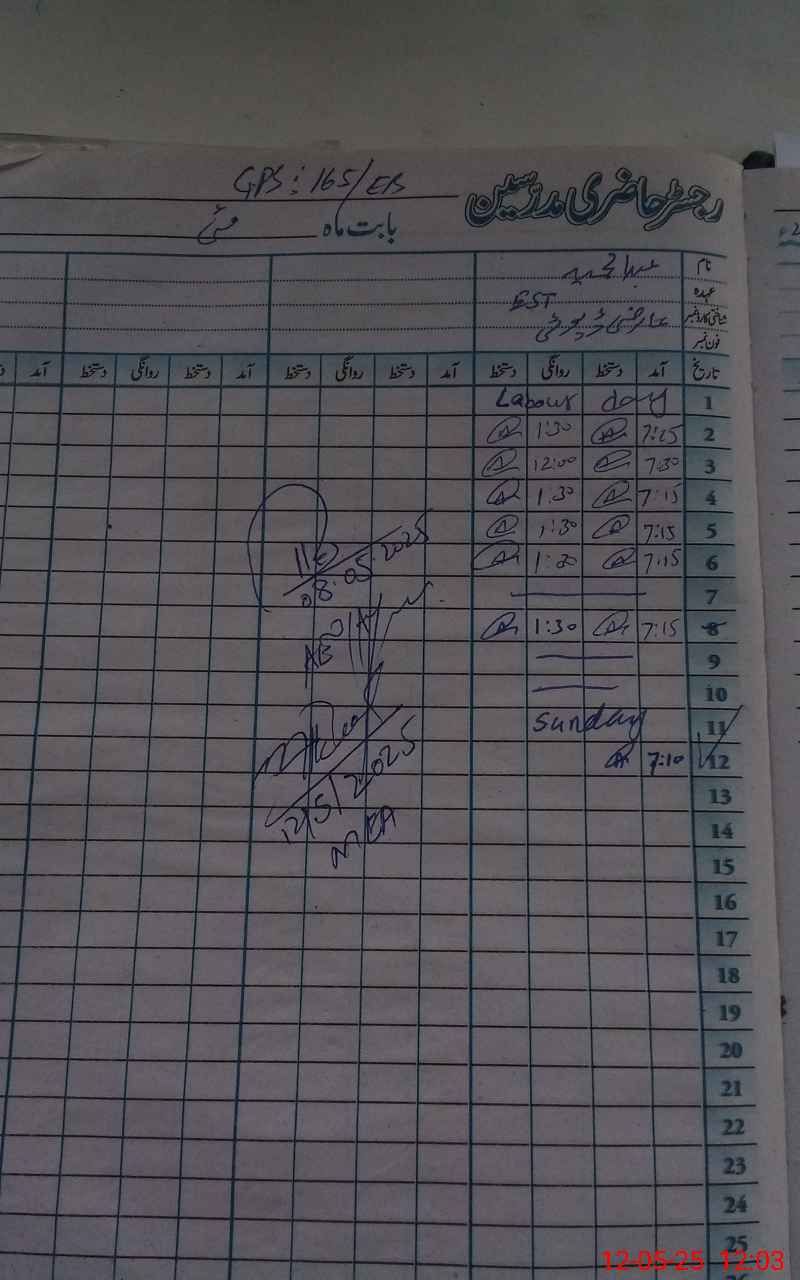 GPS: 165/EB
رجسٹر حاضری مدرسین
بابت ماہ مئی
نام عبدالحمید
عہدہ EST
شناختی کارڈ نمبر عارضی ڈیوٹی
فون نمبر
تاریخ آمد دستخط روانگی دستخط آمد دستخط روانگی دستخط آمد دستخط روانگی دستخط آمد
1 Labour day
2 7:15 1:30
3 7:30 12:00
4 7:15 1:30
5 7:15 1:30
6 7:15 1:30
7
8 7:15 1:30
9
10
11 Sunday
12 7:10
13
14
15
16
17
18
19
20
21
22
23
24
25
08.05.2025
12/5/2025
MEA
12-05-25 12:03